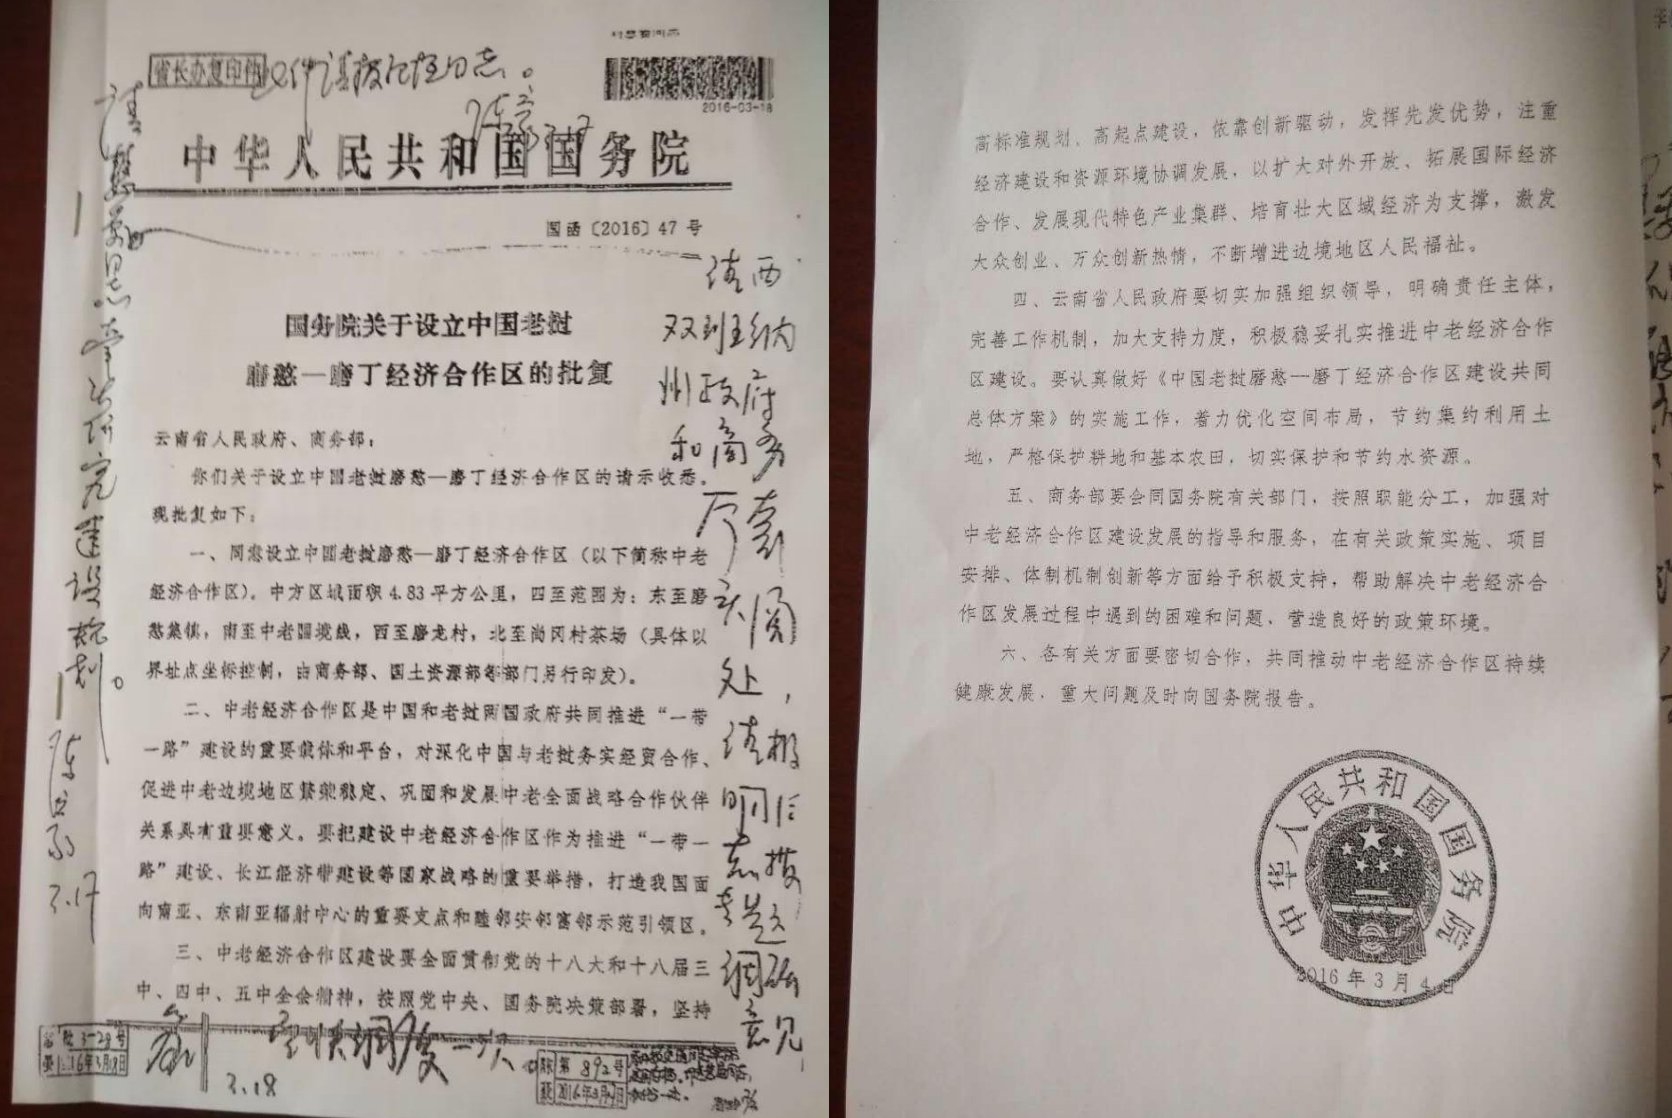 省长办复印件
2016-03-18
中华人民共和国国务院
国函〔2016〕47 号
国务院关于设立中国老挝
磨憨—磨丁经济合作区的批复
云南省人民政府、商务部：
你们关于设立中国老挝磨憨—磨丁经济合作区的请示收悉。
现批复如下：
一、同意设立中国老挝磨憨—磨丁经济合作区（以下简称中老
经济合作区）。中方区域面积 4.83 平方公里，四至范围为：东至磨
憨集镇，南至中老国境线，西至磨龙村，北至尚冈村茶场（具体以
界址点坐标控制，由商务部、国土资源部等部门另行印发）。
二、中老经济合作区是中国和老挝两国政府共同推进“一带
一路”建设的重要载体和平台，对深化中国与老挝务实经贸合作、
促进中老边境地区繁荣稳定、巩固和发展中老全面战略合作伙伴
关系具有重要意义。要把建设中老经济合作区作为推进“一带一
路”建设、长江经济带建设等国家战略的重要举措，打造我国面
向南亚、东南亚辐射中心的重要支点和睦邻安邻富邻示范引领区。
三、中老经济合作区建设要全面贯彻党的十八大和十八届三
中、四中、五中全会精神，按照党中央、国务院决策部署，坚持
请西
双版纳
州政府
和商务
厅
阅
处，
请
意见
3.17
3.18
3-29号
2016年3月18日
第 892号
2016年3月
高标准规划、高起点建设，依靠创新驱动，发挥先发优势，注重
经济建设和资源环境协调发展，以扩大对外开放、拓展国际经济
合作、发展现代特色产业集群、培育壮大区域经济为支撑，激发
大众创业、万众创新热情，不断增进边境地区人民福祉。
四、云南省人民政府要切实加强组织领导，明确责任主体，
完善工作机制，加大支持力度，积极稳妥扎实推进中老经济合作
区建设。要认真做好《中国老挝磨憨—磨丁经济合作区建设共同
总体方案》的实施工作，着力优化空间布局，节约集约利用土
地，严格保护耕地和基本农田，切实保护和节约水资源。
五、商务部要会同国务院有关部门，按照职能分工，加强对
中老经济合作区建设发展的指导和服务，在有关政策实施、项目
安排、体制机制创新等方面给予积极支持，帮助解决中老经济合
作区发展过程中遇到的困难和问题，营造良好的政策环境。
六、各有关方面要密切合作，共同推动中老经济合作区持续
健康发展，重大问题及时向国务院报告。
中华人民共和国国务院
2016 年 3 月 4 日